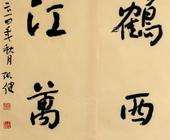 鶴西
江萬
二〇一四年秋月